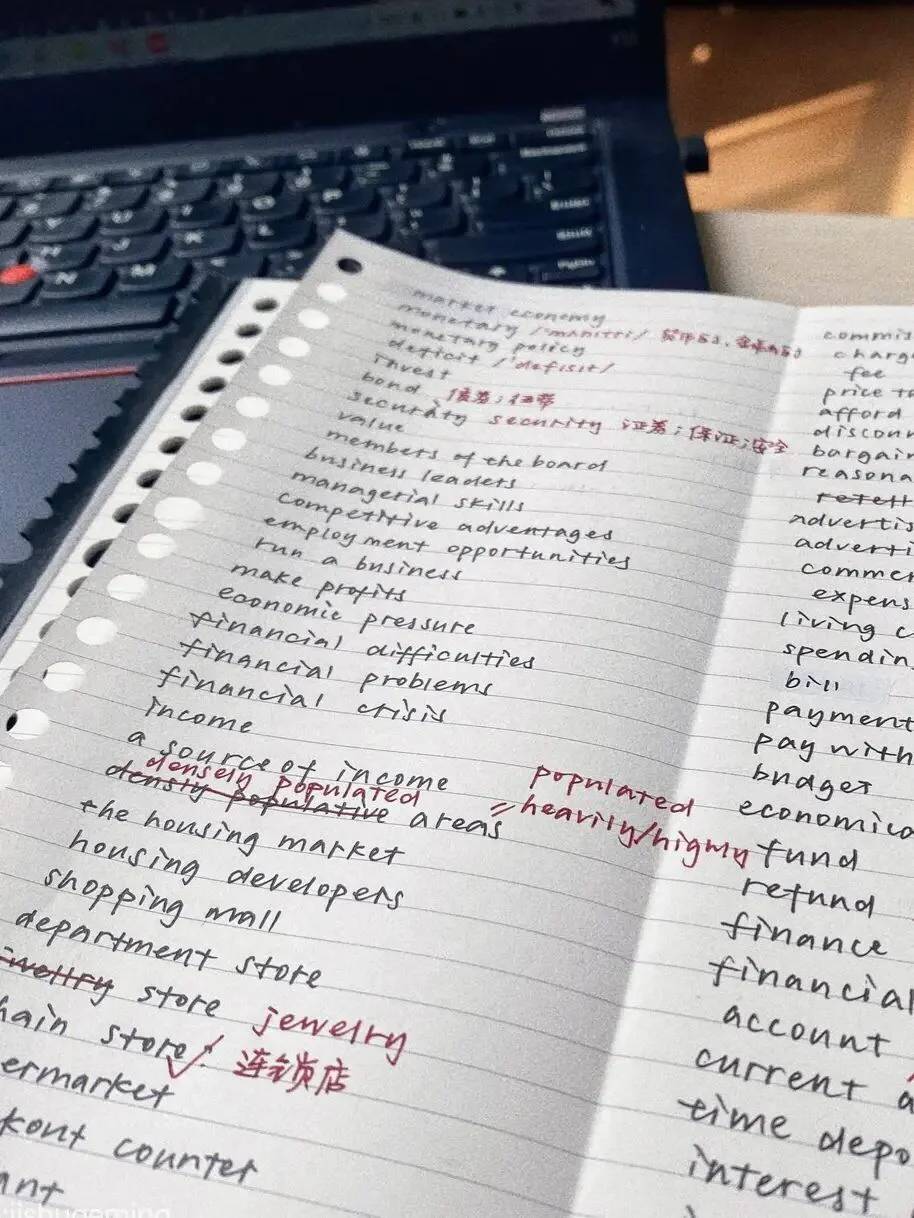 market economy
monetary /'mʌnitri/ 货币的、金融的
monetary policy
deficit /'defisit/
invest
bond 债券；纽带
security security 证券；保证；安全
value
members of the board
business leaders
managerial skills
competitive adventages
employment opportunities
run a business
make profits
economic pressure
financial difficulties
financial problems
financial crisis
income
a source of income
densely populated
densty populative areas
populated
=heavily/highly
the housing market
housing developers
shopping mall
department store
store jewelry
hain store 连锁店
ermarket
kout counter
ant
commis
charg
fee
price t
afford
discoun
bargain
reasona
advertis
adverti
commer
expens
living c
spendin
bill
payment
pay with
budget
economica
fund
refund
finance
financial
account
current a
time depo
interest